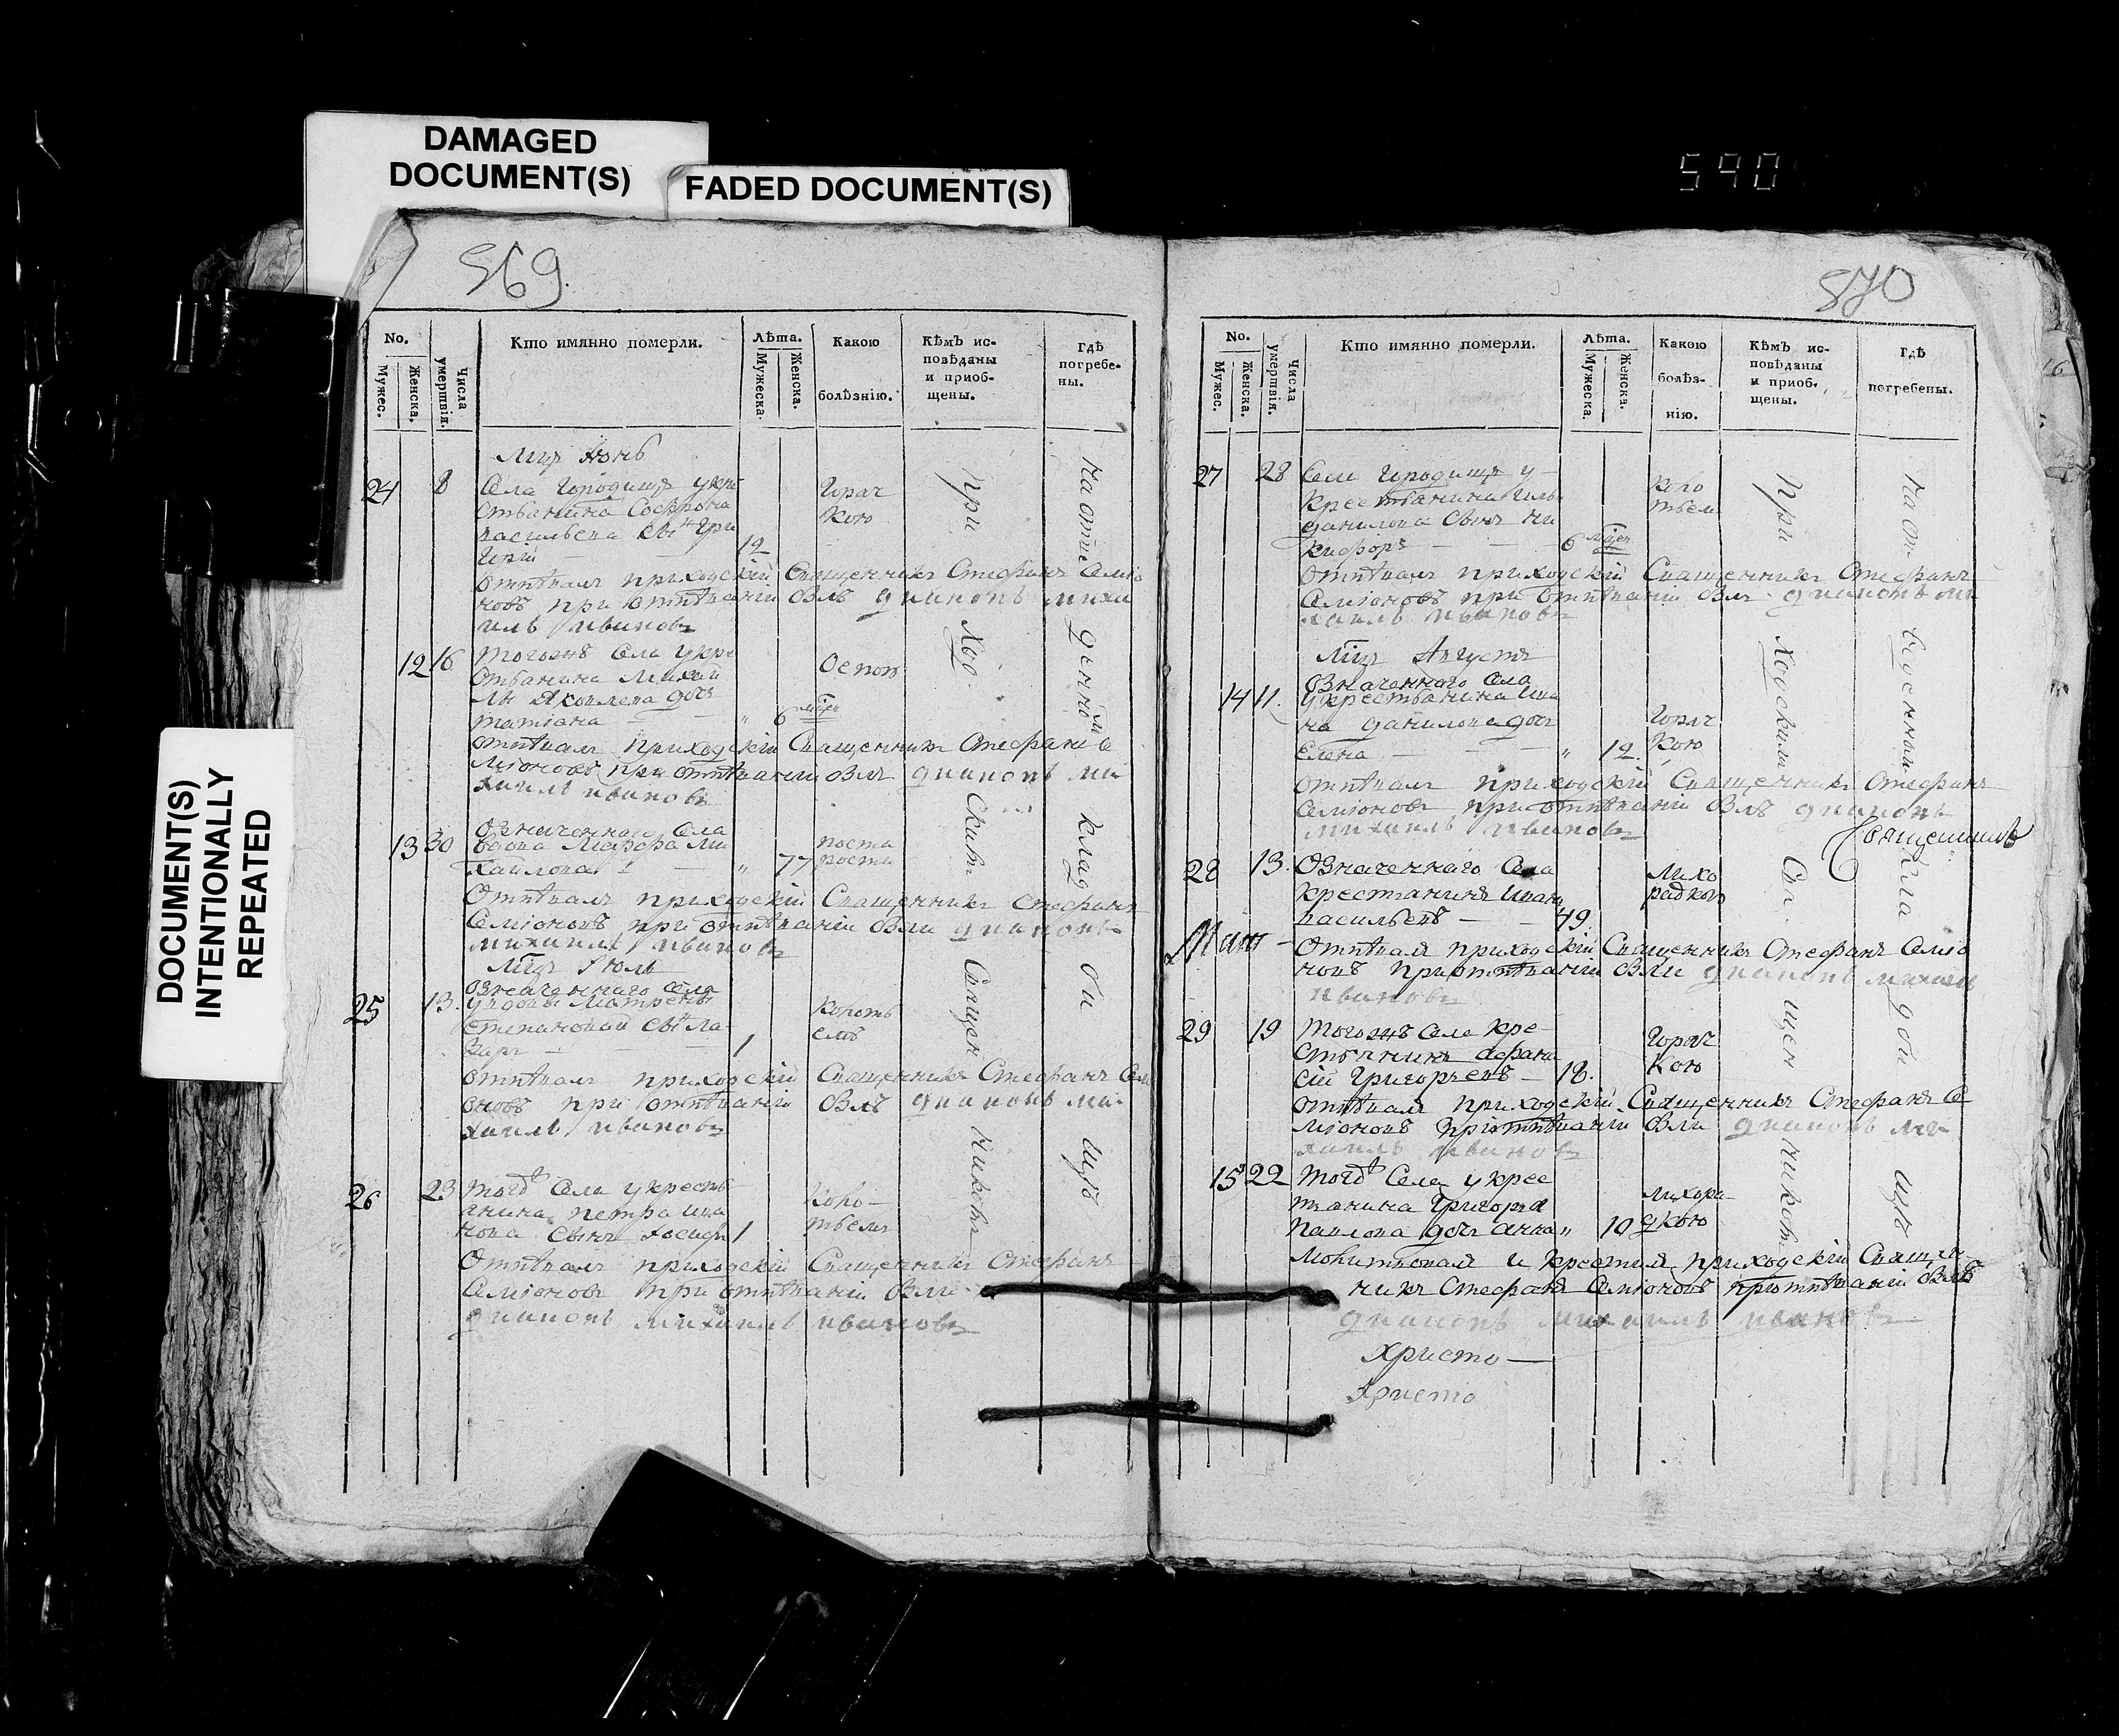 DAMAGED
DOCUMENT(S)
FADED DOCUMENT(S)
590
DOCUMENT(S)
INTENTIONALLY
REPEATED
569.
No.
Мужес.
Женска.
Числа умертвія.
Кто имянно померли.
Лѣта.
Мужеска.
Женска.
Какою
болѣзнію.
Кѣмъ ис-
повѣданы
и приоб-
щены.
Гдѣ
погребе-
ны.
24 8 Села Городища укре
стьянина Софрона
васильева
горій 12
Горяч
кою
отпѣвалъ приходскій Священникъ Стефанъ Семіо
новъ при отпѣваніи былъ диаконъ миха
илъ ивановъ
12 16 тогожъ села укре
стьянина Михай
лы Яковлева дочь
татіана 6
Оспою
отпѣвалъ приходскій Священникъ Стефанъ Се
міоновъ при отпѣваніи былъ диаконъ ми
хаилъ ивановъ
13 30 означеннаго села
вдова Марфа Ми
хайлова 77
отпѣвалъ приходскій Священникъ Стефанъ
Семіоновъ при отпѣваніи были диаконъ
михаилъ ивановъ
Мцъ Іюль
означеннаго села
25 13. у вдовы Матрены
Степановой сынъ Ла
зарь 1
отпѣвалъ приходскій Священникъ Стефанъ Семі
оновъ при отпѣваніи былъ диаконъ ми
хаилъ ивановъ
26 23 тогожъ села укресть
янина петра ива
нова сынъ Іосифъ 1
отпѣвалъ приходскій Священникъ Стефанъ
Семіоновъ при отпѣваніи были
диаконъ михаилъ ивановъ
при ход скимъ Священ никомъ
на отве денномъ клад би щѣ
870
No.
Мужес.
Женска.
Числа умертвія.
Кто имянно померли.
Лѣта.
Мужеска.
Женска.
Какою
болѣз-
нію.
Кѣмъ ис-
повѣданы
и приоб-
щены.
Гдѣ
погребены.
16
27 28 Села Городища у
крестьянина
данилова сынъ ни
кифоръ 6
отпѣвалъ приходскій Священникъ Стефанъ
Семіоновъ при отпѣваніи былъ диаконъ ми
хаилъ ивановъ
Мцъ Августъ
означеннаго села
14 11. укрестьянина ива
на данилова дочь
Елена 12.
Горяч
кою
отпѣвалъ приходскій Священникъ Стефанъ
Семіоновъ при отпѣваніи былъ диаконъ
михаилъ ивановъ
Священникъ
28 13. означеннаго села
крестянинъ иванъ
васильевъ 49
Лихо
радкою
отпѣвалъ приходскій Священникъ Стефанъ Семіо
новъ при отпѣваніи были диаконъ михаилъ
ивановъ
29 19 тогожъ села кре
стьянинъ афана
сій Григорьевъ 18.
Горяч
кою
отпѣвалъ приходскій Священникъ Стефанъ Се
міоновъ при отпѣваніи были диаконъ ми
хаилъ ивановъ
15 22 тогожъ села укрес
тянина Григорья
павлова дочь анна 10
Лихора
дкою
Молитвовал и крестил приходскій Священ
никъ Стефанъ Семіоновъ при отпѣваніи былъ
диаконъ михаилъ ивановъ
Христо
Христо
при ходскимъ Свя щен никомъ
на от веденномъ кла дби щѣ